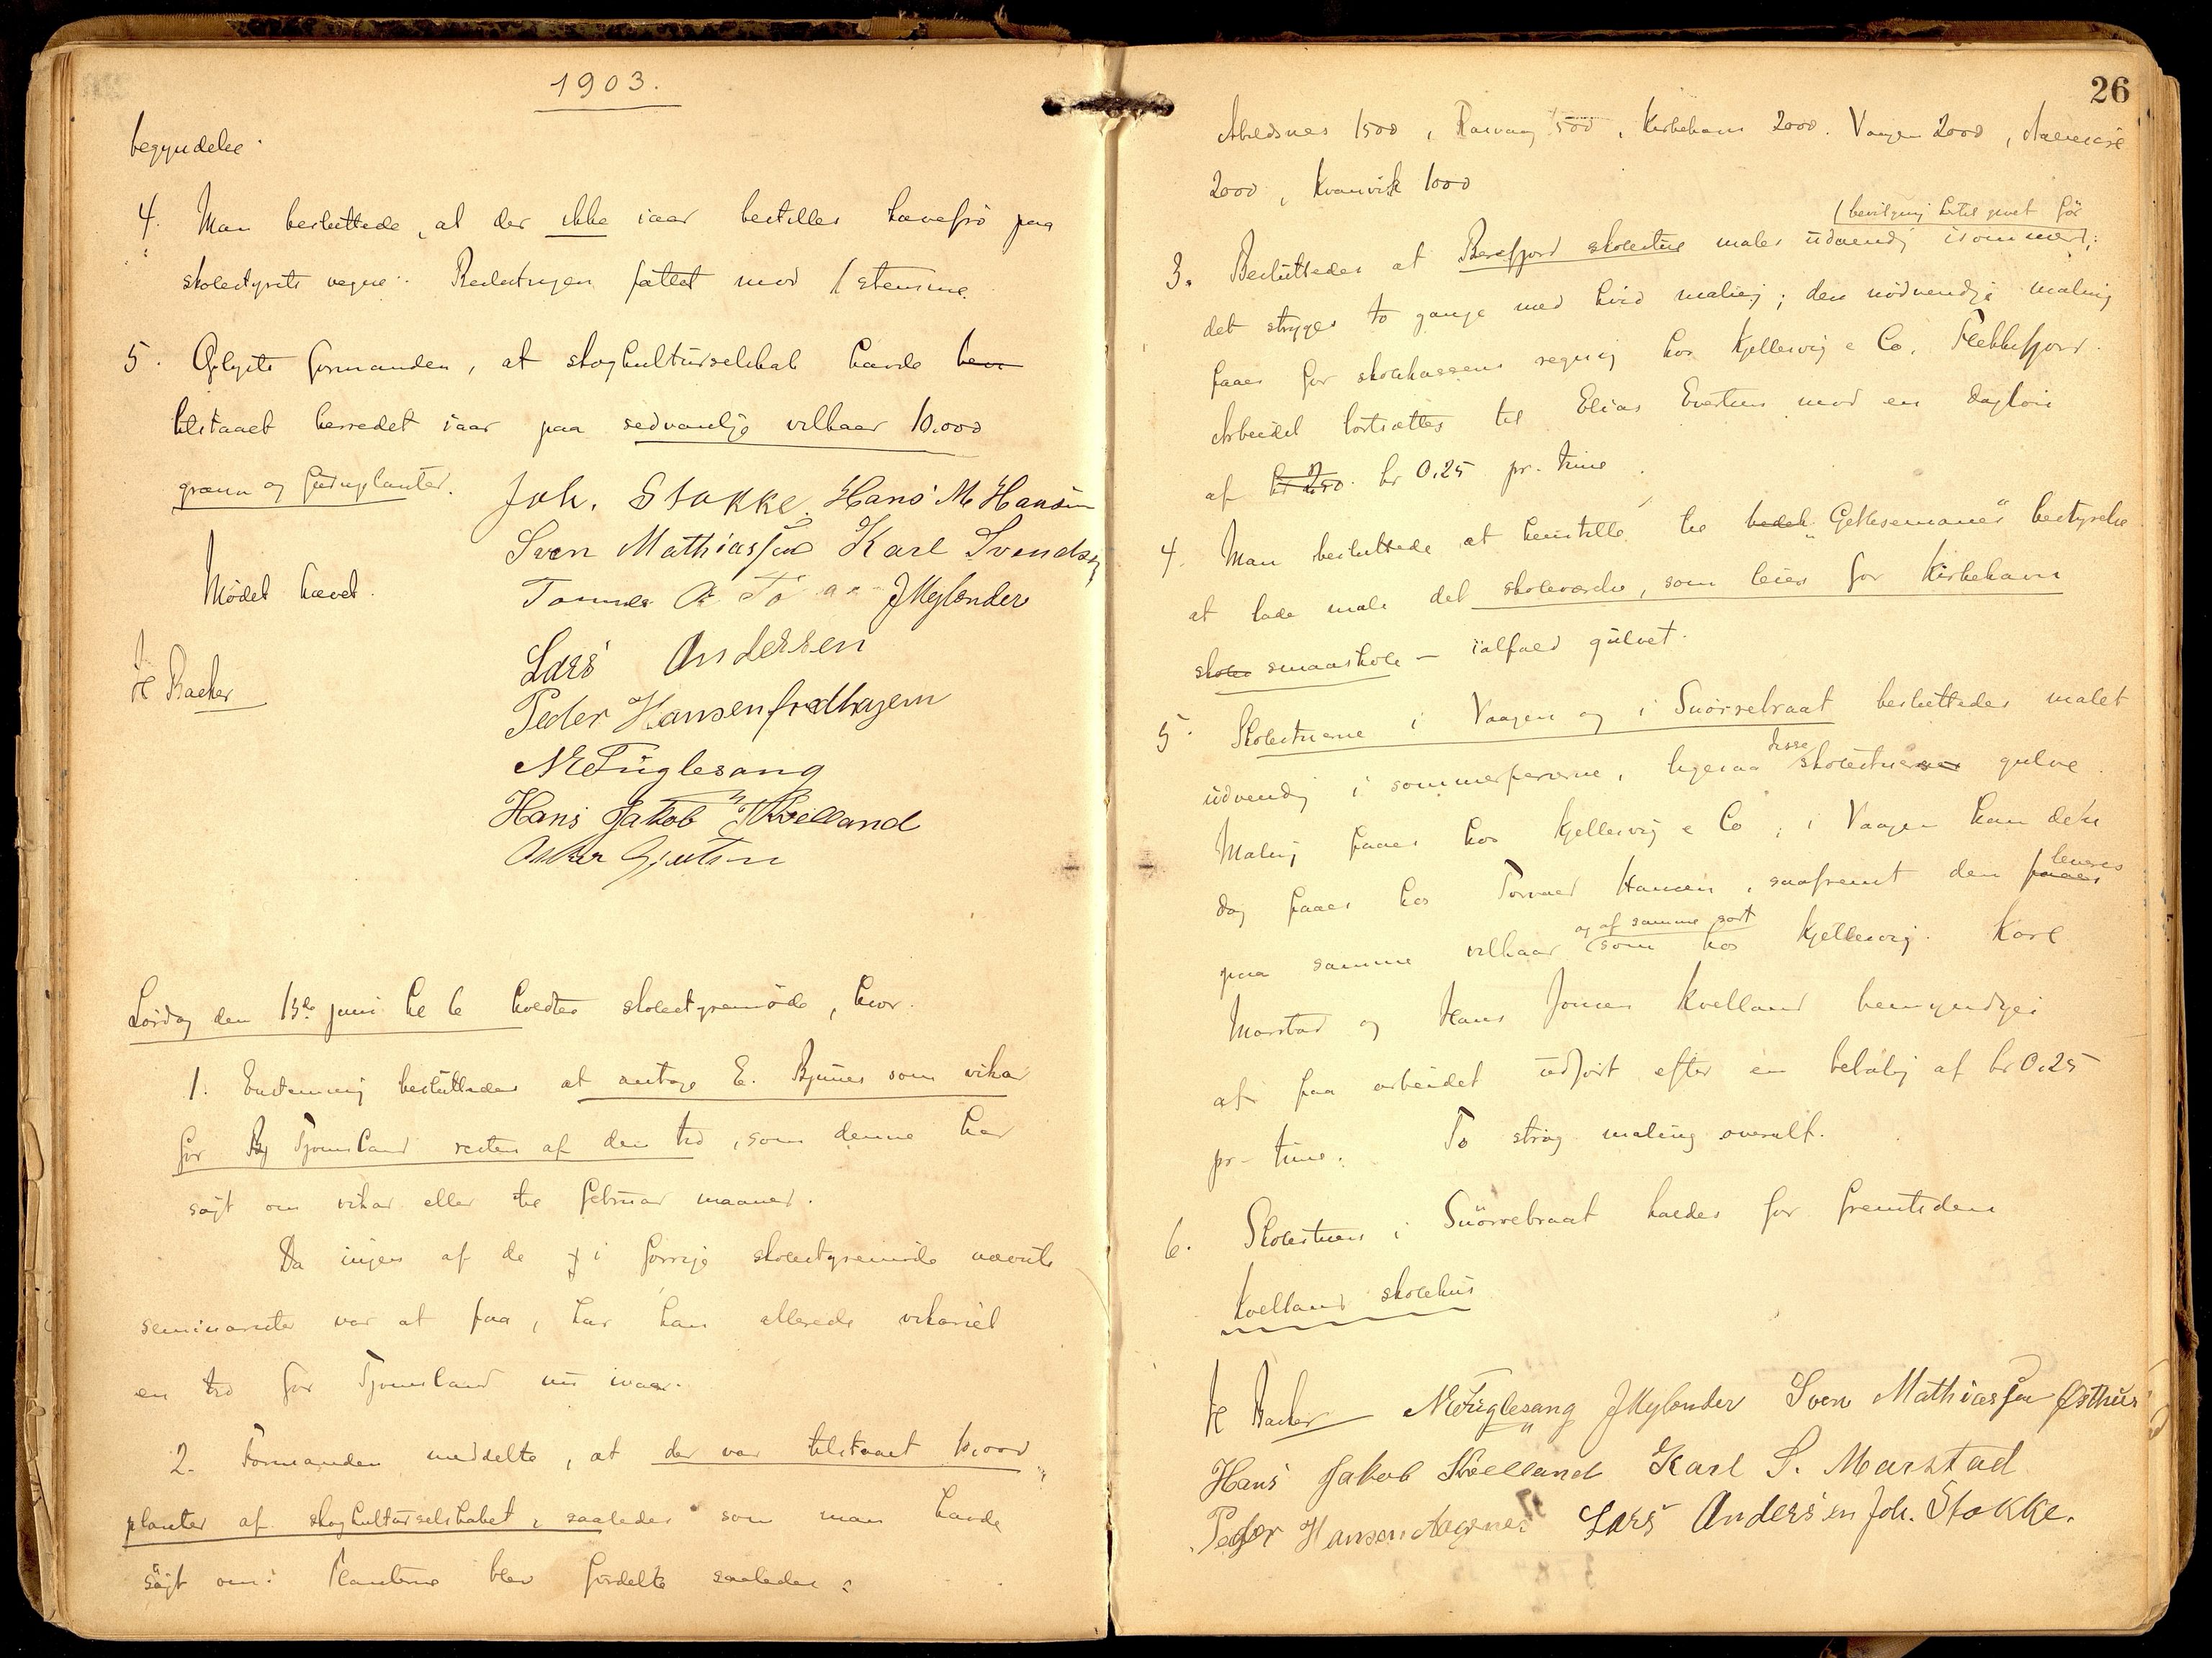 1903.
begyndelse.
4. Man besluttede, at der ikke iaar bestilles havefrö paa
skolestyrets vegne. Beslutningen fattet mod 1 stemme.
5. Oplyste formanden, at skogkulturselskab havde bev
tilstaaet herredet iaar paa sedvanlige vilkaar 10.000
gran og furuplanter.
Joh. Stokke. Hans M Hansen
Sven Mathiassen Karl Svendsen
Mødet hævet.
Tønnes JMylander
Lars Andersen
H Backer
Peder Hansen
NEFuglesang
Hans Jakob Kvelland
Lördag den 13de juni kl 6 holdtes skolestyremöde, hvor.
1. Enstemmig besluttedes at antage E. Bjunes som vikar
for Tjomsland resten af den tid, som denne har
sögt om vikar eller til februar maaned.
Da ingen af de i forrige skolestyremöde nævnte
seminarister var at faa, har han allerede vikariet
en tid for Tjomsland nu ivaar.
2. Formanden meddelte, at der var tilstaaet 10.000
planter af skogkulturselskabet, saaledes som man havde
sögt om. Planterne blev fordelte saaledes:
26
Abelsnes 1500, Rasvaag 500, Kirkehavn 2000. Vaagen 2000,
2000, Kvanvik 1000
(bevilgning hertil givet för
3. Besluttedes at skolestue males udvendig isommer;
det stryges to gange med hvid maling; den nödvendige maling
faaes for skolekassens regning hos Kjellevig & Co. Flekkefjord.
Arbeidet bortsættes til Elias Evertsen mod en daglön
af kr 2.50. kr 0.25 pr. time.
4. Man besluttede at henstille til bedeh "Gethsemanes" bestyrelse
at lade male det skoleværelse, som leies for Kirkehavn
skoles smaaskole – ialfald gulvet.
5. Skolestuerne i Vaagen og i Snörrebraat besluttedes malet
disse
udvendig i sommerferierne, ligesaa skolestuers gulve.
Maling faaes hos Kjellevig & Co; i Vaagen kan den
leveres
dog faaes hos Torvald Hansen, saafremt den faaes
og af samme sort
paa samme vilkaar som hos Kjellevig. Karl
Marstad og Hans Jonsen Kvelland bemyndiges
at faa arbeidet udfört efter en betaling af kr 0.25
pr. time. To strög maling overalt.
6. Skolestuen i Snörrebraat kaldes for fremtiden
Kvelland skolehus
H Backer NEFuglesang JMylander Sven Mathiassen Østhus
Hans Jakob Kvelland Karl S. Marstad
Peder Hansen Lars Andersen Joh. Stokke.